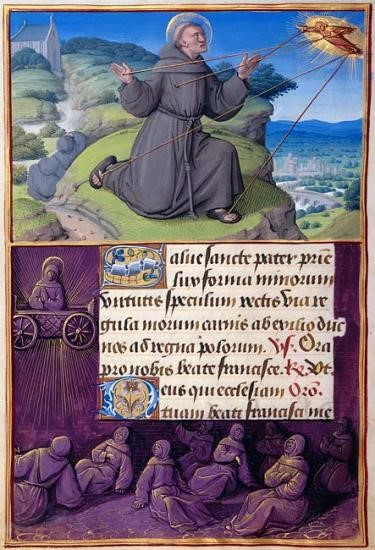 Salue sancte pater prie
lux forma minorum
virtutis speculum rectis via re
gula morum carnis ab exilio duc
nos ad regna polorum. Vs. Ora
pro nobis beate francisce. R. Vt
Deus qui ecclesiam Oro
tuam beati francisci me